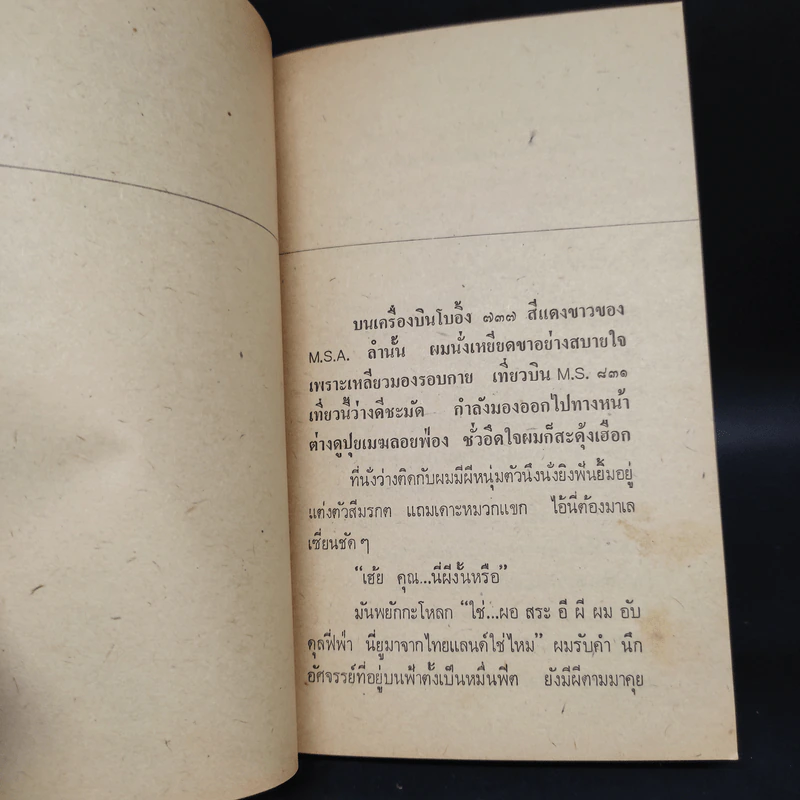 บนเครื่องบินโบอิ้ง ๗๓๗ สีแดงขาวของ
M.S.A. ลำนั้น ผมนั่งเหยียดขาอย่างสบายใจ
เพราะเหลียวมองรอบกาย เที่ยวบิน M.S. ๘๓๑
เที่ยวนี้ว่างดีชะมัด กำลังมองออกไปทางหน้า
ต่างดูปุยเมฆลอยฟ่อง ชั่วอึดใจผมก็สะดุ้งเฮือก
ที่นั่งว่างติดกับผมมีผีหนุ่มตัวนึงนั่งยิงฟันยิ้มอยู่
แต่งตัวสีมรกต แถมเคาะหมวกแขก ไอ้นี่ต้องมาเล
เซี่ยนชัดๆ
“เฮ้ย คุณ...นี่ผีงั้นหรือ”
มันพยักกะโหลก “ใช่...ผอ สระ อี ผี ผม อับ
ดุลฟีฟ่า นี่ยูมาจากไทยแลนด์ใช่ไหม” ผมรับคำ นึก
อัศจรรย์ที่อยู่บนฟ้าตั้งเป็นหมื่นฟีต ยังมีผีตามมาคุย